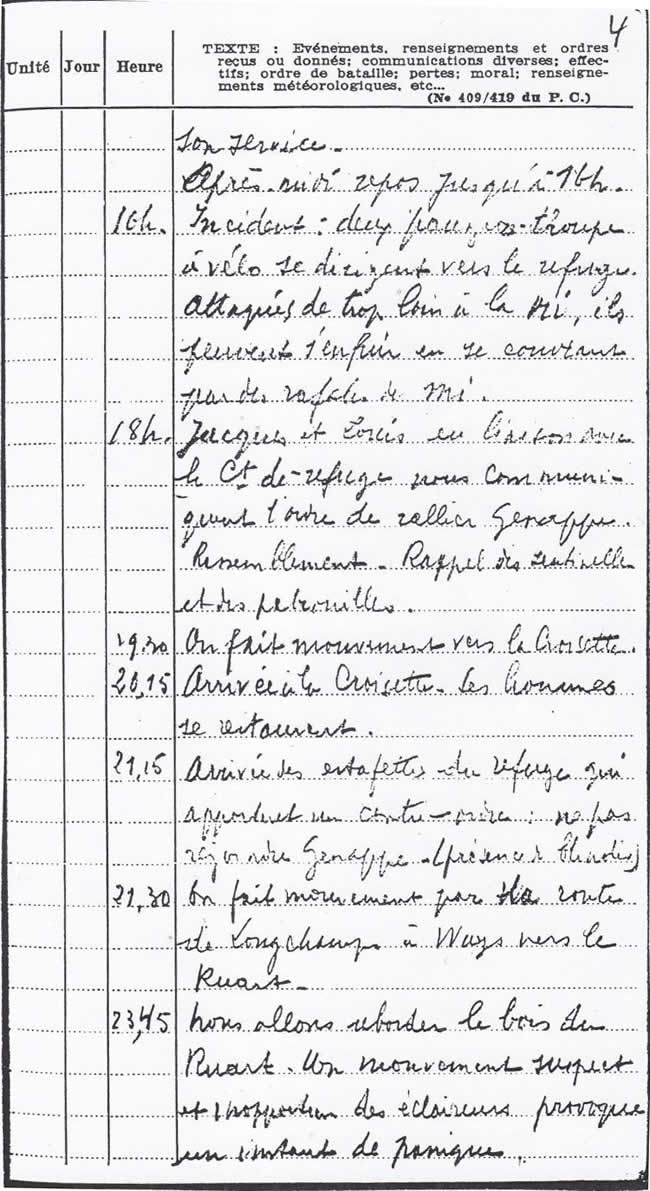 4
Unité Jour Heure
TEXTE : Evénements, renseignements et ordres
reçus ou donnés; communications diverses; effec-
tifs; ordre de bataille; pertes; moral; renseigne-
ments météorologiques, etc...
(No 409/419 du P. C.)
son service.
Après-midi repos jusqu'à 16h.
16h. Incident : deux troupe
à vélo se dirigent vers le refuge.
Attaqués de trop loin à la Mi, ils
peuvent s'enfuir en se couvrant
par des rafales de Mi.
18h. Jacques et Louis en liaison avec
le Ct de refuge nous communi-
quent l'ordre de rallier Genappe.
Rassemblement - Rappel des sentinelles
et des patrouilles.
19.30 On fait mouvement vers la Croisette.
20,15 Arrivée à la Croisette. Les hommes
se restaurent.
21,15 Arrivée des estafettes du refuge qui
apportent un contre-ordre : ne pas
rejoindre Genappe - (présence de blindés)
21,30 On fait mouvement par la route
de Longchamp à Ways vers le
Ruart.
23,45 Nous allons aborder le bois du
Ruart. Un mouvement suspect
et des éclaireurs provoque
un instant de panique.